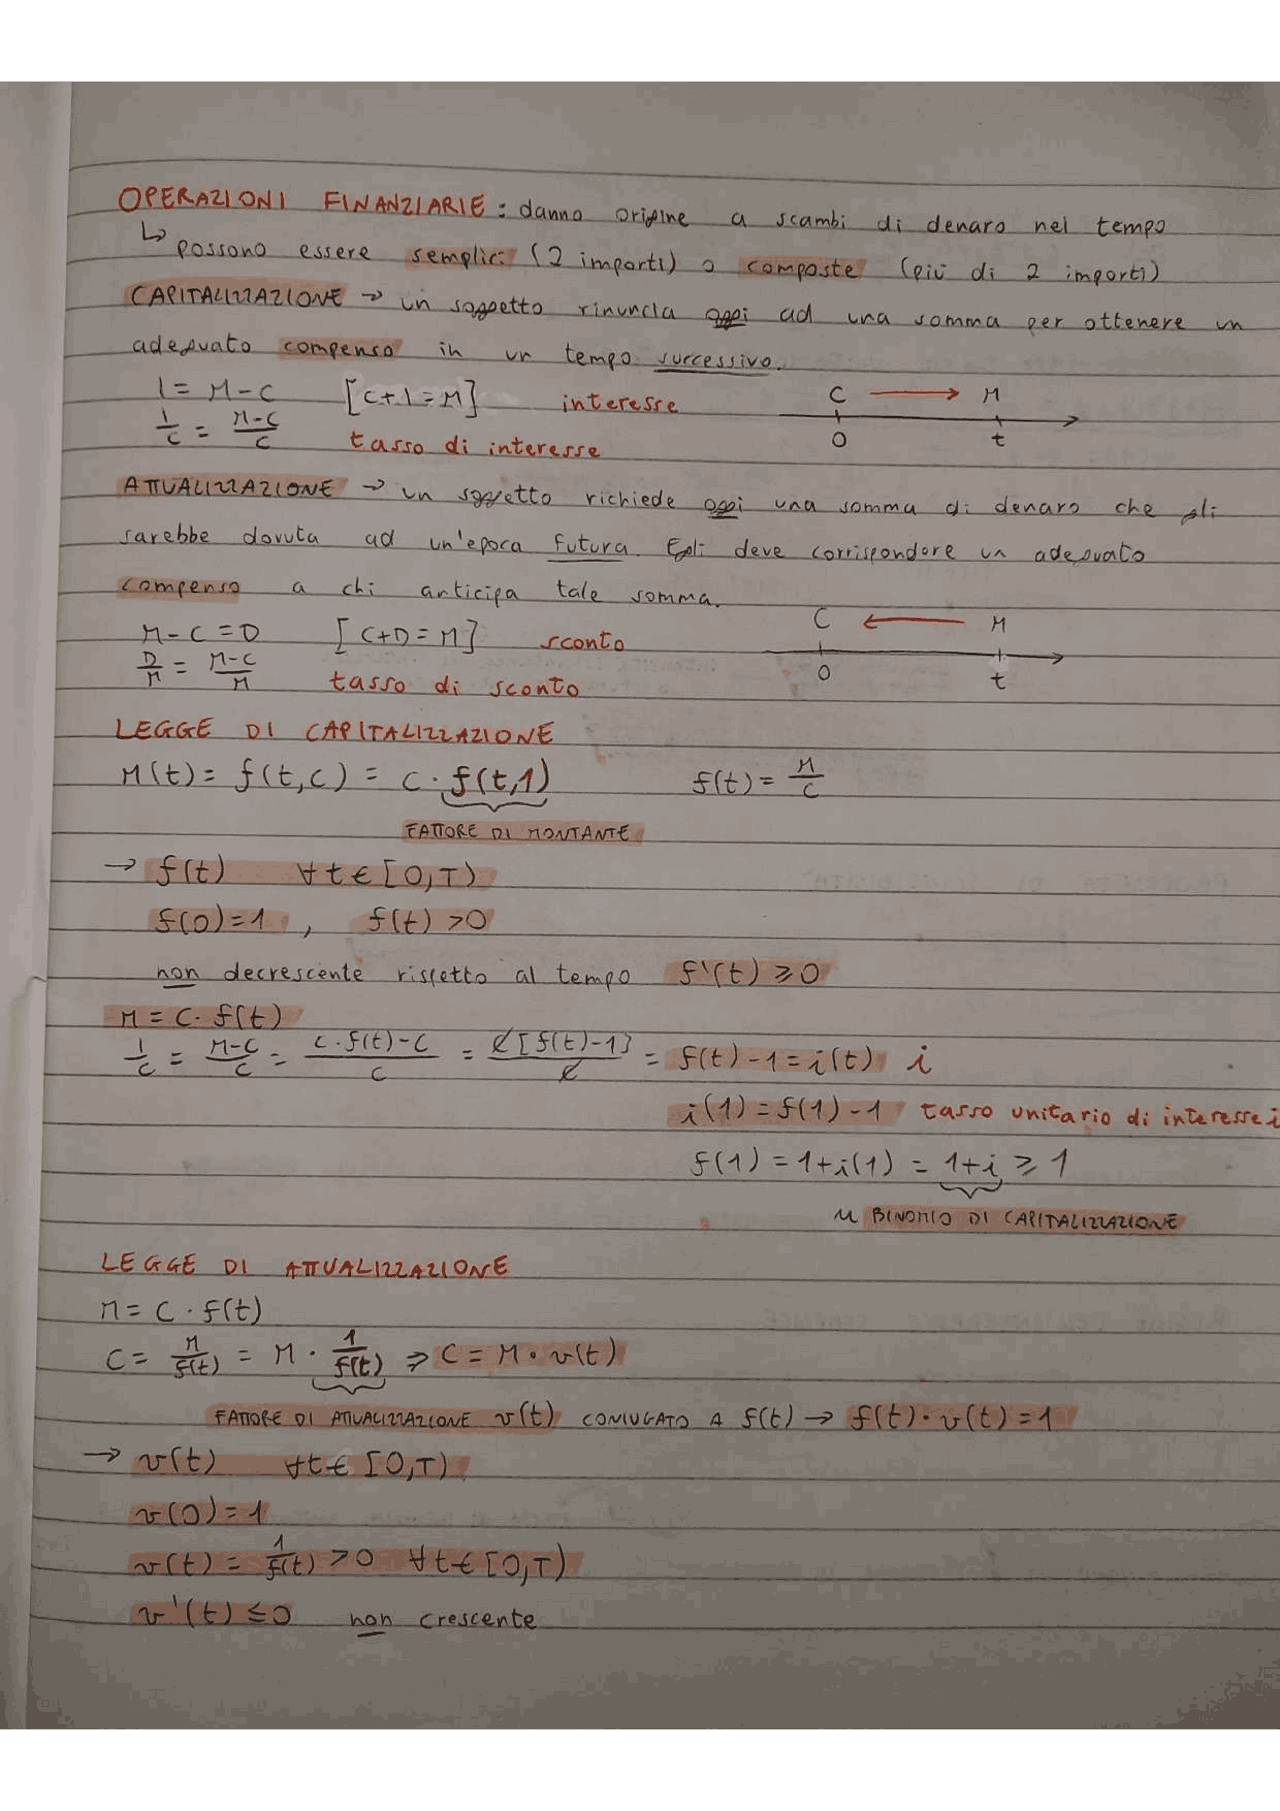 OPERAZIONI FINANZIARIE : danno origine a scambi di denaro nel tempo
↳ possono essere semplici (2 importi) o composte (più di 2 importi)
CAPITALIZZAZIONE → un soggetto rinuncia oggi ad una somma per ottenere un
adeguato compenso in un tempo successivo.
I = M-C [C+I=M] interesse C → M
I/C = M-C/C tasso di interesse 0 t
ATTUALIZZAZIONE → un soggetto richiede oggi una somma di denaro che gli
sarebbe dovuta ad un'epoca futura. Egli deve corrispondere un adeguato
compenso a chi anticipa tale somma.
M-C=D [C+D=M] sconto C ← M
D/M = M-C/M tasso di sconto 0 t
LEGGE DI CAPITALIZZAZIONE
M(t) = f(t,C) = C · f(t,1) f(t) = M/C
FATTORE DI MONTANTE
→ f(t) ∀t∈[0,T)
f(0)=1 , f(t) >0
non decrescente rispetto al tempo f'(t) ⩾ 0
M = C· f(t)
I/C = M-C/C = C·f(t)-C/C = C[f(t)-1]/C = f(t)-1=i(t) i
i(1)=f(1)-1 tasso unitario di interesse i
f(1) = 1+i(1) = 1+i ⩾ 1
u BINOMIO DI CAPITALIZZAZIONE
LEGGE DI ATTUALIZZAZIONE
M = C · f(t)
C = M/f(t) = M · 1/f(t) ⇒ C = M · v(t)
FATTORE DI ATTUALIZZAZIONE v(t) CONIUGATO A f(t) → f(t)·v(t)=1
→ v(t) ∀t∈ [0,T)
v(0)=1
v(t) = 1/f(t) >0 ∀t∈[0,T)
v'(t) ≤0 non crescente